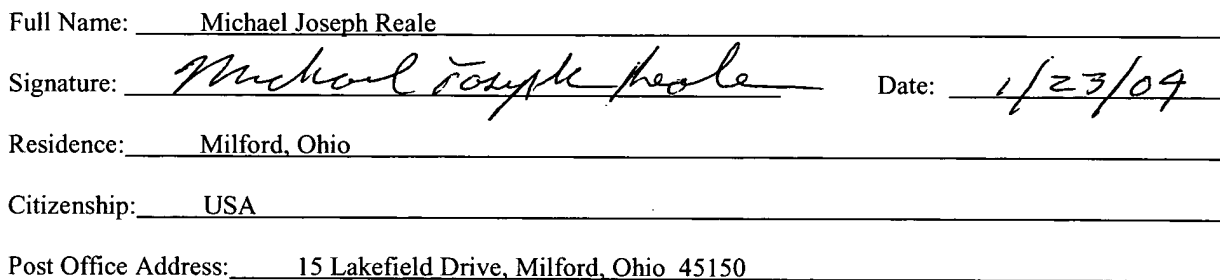 Full Name: Michael Joseph Reale
Signature: Michael Joseph Reale Date: 1/23/04
Residence: Milford, Ohio
Citizenship: USA
Post Office Address: 15 Lakefield Drive, Milford, Ohio 45150